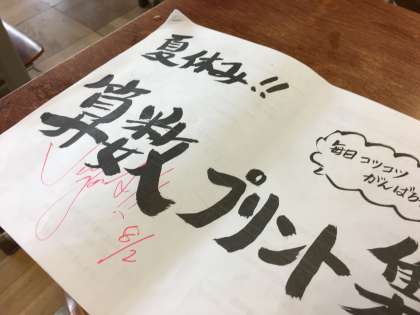 夏休み!!
算数
プリント集
毎日コツコツ
がんばろ
8/2